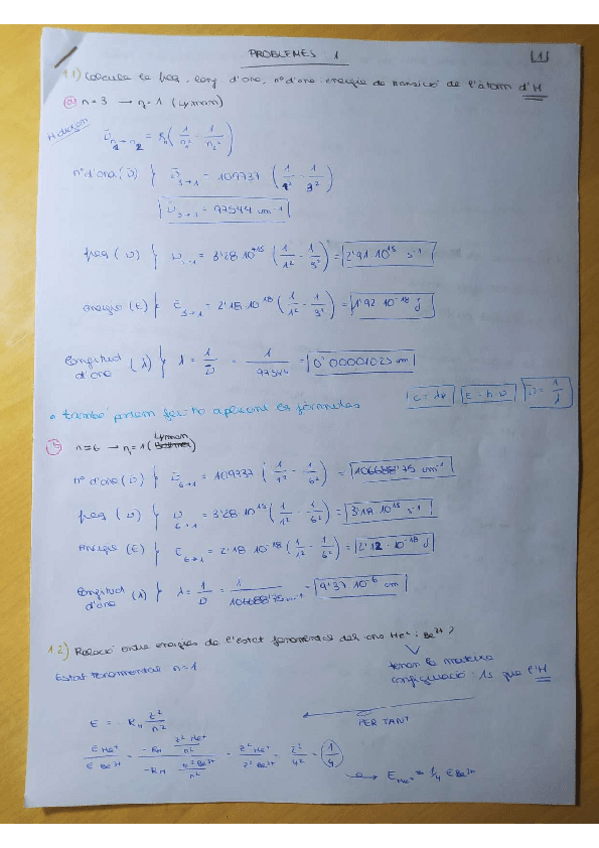 PROBLEMES 1
1
1.1) Calcula la freq. long d'ona, nº d'ona i energia de transició de l'àtom d'H
a) n=3 → n=1 (Lyman)
ν̄ n1→n2 = R_H (1/n1² - 1/n2²)
nº d'ona (ν̄) } ν̄ 3→1 = 109737 (1/1² - 1/3²)
ν̄ 3→1 = 97544 cm-1
freq (ν) } = 3'28 10+15 (1/1² - 1/3²) = 2'91 10^15 s-1
energia (E) } E 3→1 = 2'18 10-18 (1/1² - 1/3²) = 1'92 10-18 J
Longitud d'ona (λ) } λ = 1/ν̄ = 1/97544 = 0'00001023 cm
c = λν E = h·ν ν̄ = 1/λ
• també podem fer-ho aplicant les fórmules
b) n=6 → n=1 (Lyman)
nº d'ona (ν̄) } ν̄ 6→1 = 109737 (1/1² - 1/6²) = 106688'75 cm-1
freq (ν) } ν 6→1 = 3'28 10^15 (1/1² - 1/6²) = 3'18 10^15 s-1
energia (E) } E 6→1 = 2'18 10-18 (1/1² - 1/6²) = 2'12 · 10-18 J
Longitud d'ona (λ) } λ = 1/ν̄ = 1/106688'75 cm-1 = 9'37 10-6 cm
1.2) Relació entre energies de l'estat fonamental dels ions He+ i Be3+?
Estat fonamental n=1
tenen la mateixa
configuració: 1s que l'H
PER TANT
E = - R_H Z²/n²
E He+ / E Be3+ = (-R_H Z² He+/n²) / (-R_H Z² Be3+/n²) = Z² He+ / Z² Be3+ = 2²/4² = 1/4
→ E He+ = 1/4 E Be3+